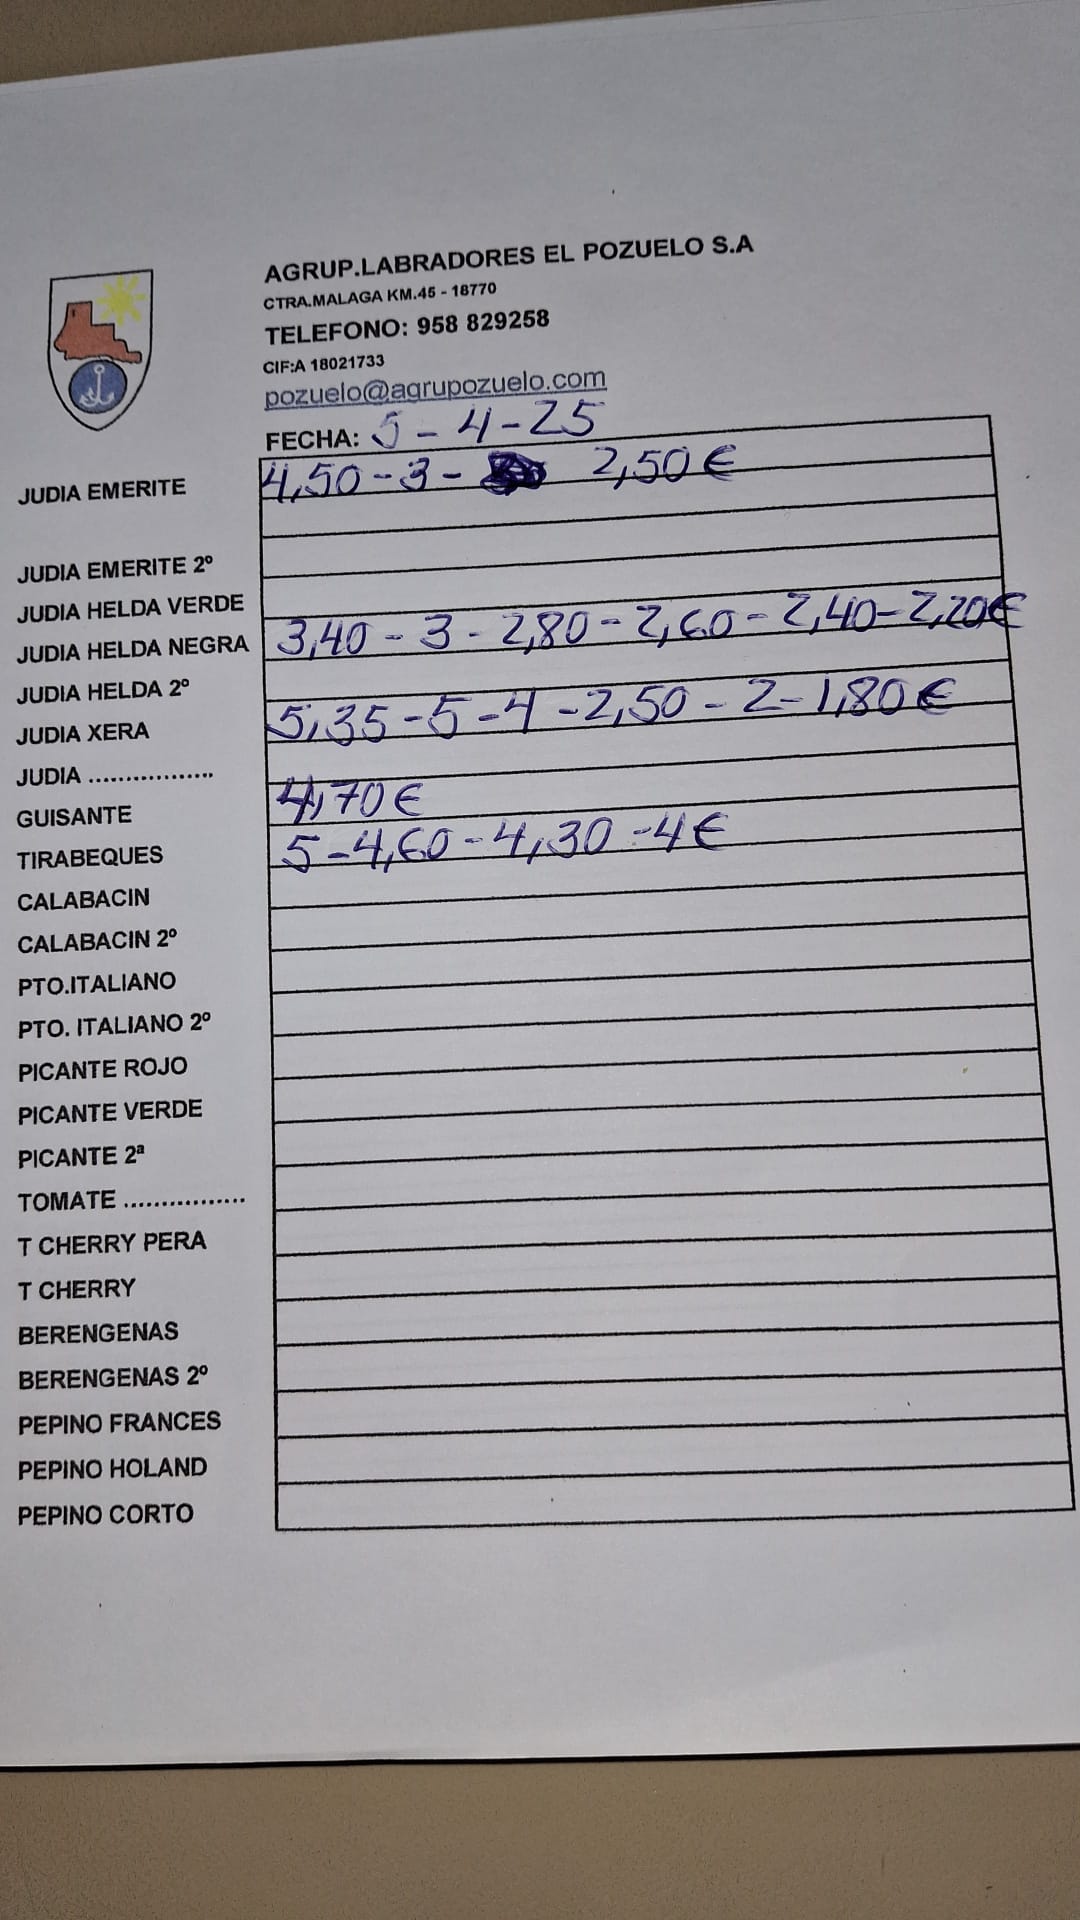 AGRUP.LABRADORES EL POZUELO S.A
CTRA.MALAGA KM.45 - 18770
TELEFONO: 958 829258
CIF:A 18021733
pozuelo@agrupozuelo.com
FECHA: 5-4-25
JUDIA EMERITE 4,50-3- 2,50€
JUDIA EMERITE 2º
JUDIA HELDA VERDE
JUDIA HELDA NEGRA 3,40-3-2,80-2,60-2,40-2,20€
JUDIA HELDA 2º
JUDIA XERA 5,35-5-4-2,50-2-1,80€
JUDIA .................
GUISANTE 4,70€
TIRABEQUES 5-4,60-4,30-4€
CALABACIN
CALABACIN 2º
PTO.ITALIANO
PTO. ITALIANO 2º
PICANTE ROJO
PICANTE VERDE
PICANTE 2ª
TOMATE ................
T CHERRY PERA
T CHERRY
BERENGENAS
BERENGENAS 2º
PEPINO FRANCES
PEPINO HOLAND
PEPINO CORTO